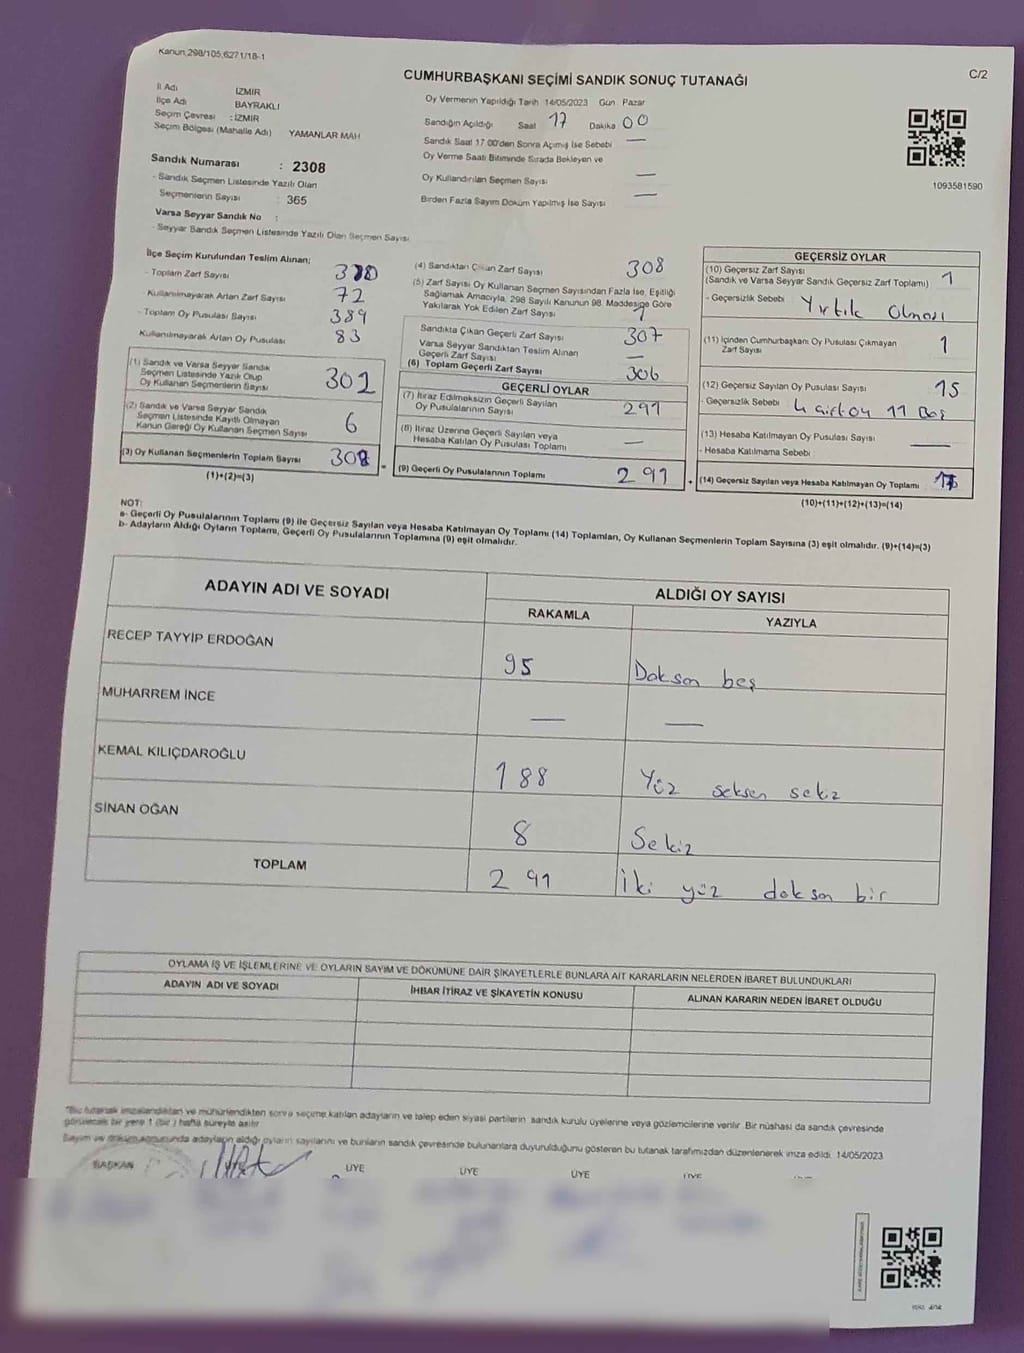 Kanun;298/105,6271/18-1
C/2
CUMHURBAŞKANI SEÇİMİ SANDIK SONUÇ TUTANAĞI
İl Adı İZMİR
İlçe Adı BAYRAKLI
Seçim Çevresi : İZMİR
Seçim Bölgesi (Mahalle Adı) YAMANLAR MAH
Sandık Numarası : 2308
- Sandık Seçmen Listesinde Yazılı Olan
Seçmenlerin Sayısı : 365
Varsa Seyyar Sandık No :
- Seyyar Sandık Seçmen Listesinde Yazılı Olan Seçmen Sayısı
Oy Vermenin Yapıldığı Tarih 14/05/2023 Gün Pazar
Sandığın Açıldığı Saat 17 Dakika 00
Sandık Saat 17.00'den Sonra Açımış İse Sebebi —
Oy Verme Saati Bitiminde Sırada Bekleyen ve
Oy Kullandırılan Seçmen Sayısı —
Birden Fazla Sayım Döküm Yapılmış İse Sayısı —
1093581590
İlçe Seçim Kurulundan Teslim Alınan;
- Toplam Zarf Sayısı
- Kullanılmayarak Artan Zarf Sayısı 72
- Toplam Oy Pusulası Sayısı 389
Kullanılmayarak Artan Oy Pusulası 83
(1) Sandık ve Varsa Seyyar Sandık
Seçmen Listesinde Yazılı Olup
Oy Kullanan Seçmenlerin Sayısı 302
(2) Sandık ve Varsa Seyyar Sandık
Seçmen Listesinde Kayıtlı Olmayan
Kanun Gereği Oy Kullanan Seçmen Sayısı 6
(3) Oy Kullanan Seçmenlerin Toplam Sayısı 308
(1)+(2)=(3)
(4) Sandıktan Çıkan Zarf Sayısı 308
(5) Zarf Sayısı Oy Kullanan Seçmen Sayısından Fazla İse, Eşitliği
Sağlamak Amacıyla, 298 Sayılı Kanunun 98. Maddesine Göre
Yakılarak Yok Edilen Zarf Sayısı 1
Sandıkta Çıkan Geçerli Zarf Sayısı 307
Varsa Seyyar Sandıktan Teslim Alınan
Geçerli Zarf Sayısı —
(6) Toplam Geçerli Zarf Sayısı 306
GEÇERLİ OYLAR
(7) İtiraz Edilmeksizin Geçerli Sayılan
Oy Pusulalarının Sayısı 291
(8) İtiraz Üzerine Geçerli Sayılan veya
Hesaba Katılan Oy Pusulası Toplamı —
(9) Geçerli Oy Pusulalarının Toplamı 291
GEÇERSİZ OYLAR
(10) Geçersiz Zarf Sayısı
(Sandık ve Varsa Seyyar Sandık Geçersiz Zarf Toplamı) 1
- Geçersizlik Sebebi Yırtık Olması
(11) İçinden Cumhurbaşkanı Oy Pusulası Çıkmayan
Zarf Sayısı 1
(12) Geçersiz Sayılan Oy Pusulası Sayısı 15
- Geçersizlik Sebebi 4 çift oy 11 Boş
(13) Hesaba Katılmayan Oy Pusulası Sayısı —
- Hesaba Katılmama Sebebi
(14) Geçersiz Sayılan veya Hesaba Katılmayan Oy Toplamı
(10)+(11)+(12)+(13)=(14)
NOT:
a- Geçerli Oy Pusulalarının Toplamı (9) ile Geçersiz Sayılan veya Hesaba Katılmayan Oy Toplamı (14) Toplamları, Oy Kullanan Seçmenlerin Toplam Sayısına (3) eşit olmalıdır. (9)+(14)=(3)
b- Adayların Aldığı Oyların Toplamı, Geçerli Oy Pusulalarının Toplamına (9) eşit olmalıdır.
ADAYIN ADI VE SOYADI
ALDIĞI OY SAYISI
RAKAMLA YAZIYLA
RECEP TAYYİP ERDOĞAN 95 Doksan beş
MUHARREM İNCE — —
KEMAL KILIÇDAROĞLU 188 Yüz seksen sekiz
SİNAN OĞAN 8 Sekiz
TOPLAM 291 İki yüz doksan bir
OYLAMA İŞ VE İŞLEMLERİNE VE OYLARIN SAYIM VE DÖKÜMÜNE DAİR ŞİKAYETLERLE BUNLARA AİT KARARLARIN NELERDEN İBARET BULUNDUKLARI
ADAYIN ADI VE SOYADI İHBAR İTİRAZ VE ŞİKAYETİN KONUSU ALINAN KARARIN NEDEN İBARET OLDUĞU
"Bu tutanak imzalandıktan ve mühürlendikten sonra seçime katılan adayların ve talep eden siyasi partilerin sandık kurulu üyelerine veya gözlemcilerine verilir. Bir nüshası da sandık çevresinde
görülecek bir yere 1 (bir) hafta süreyle asılır
Sayım ve döküm sonucunda adayların aldığı oyların sayılarını ve bunların sandık çevresinde bulunanlara duyurulduğunu gösteren bu tutanak tarafımızdan düzenlenerek imza edildi. 14/05/2023
BAŞKAN ÜYE ÜYE ÜYE ÜYE